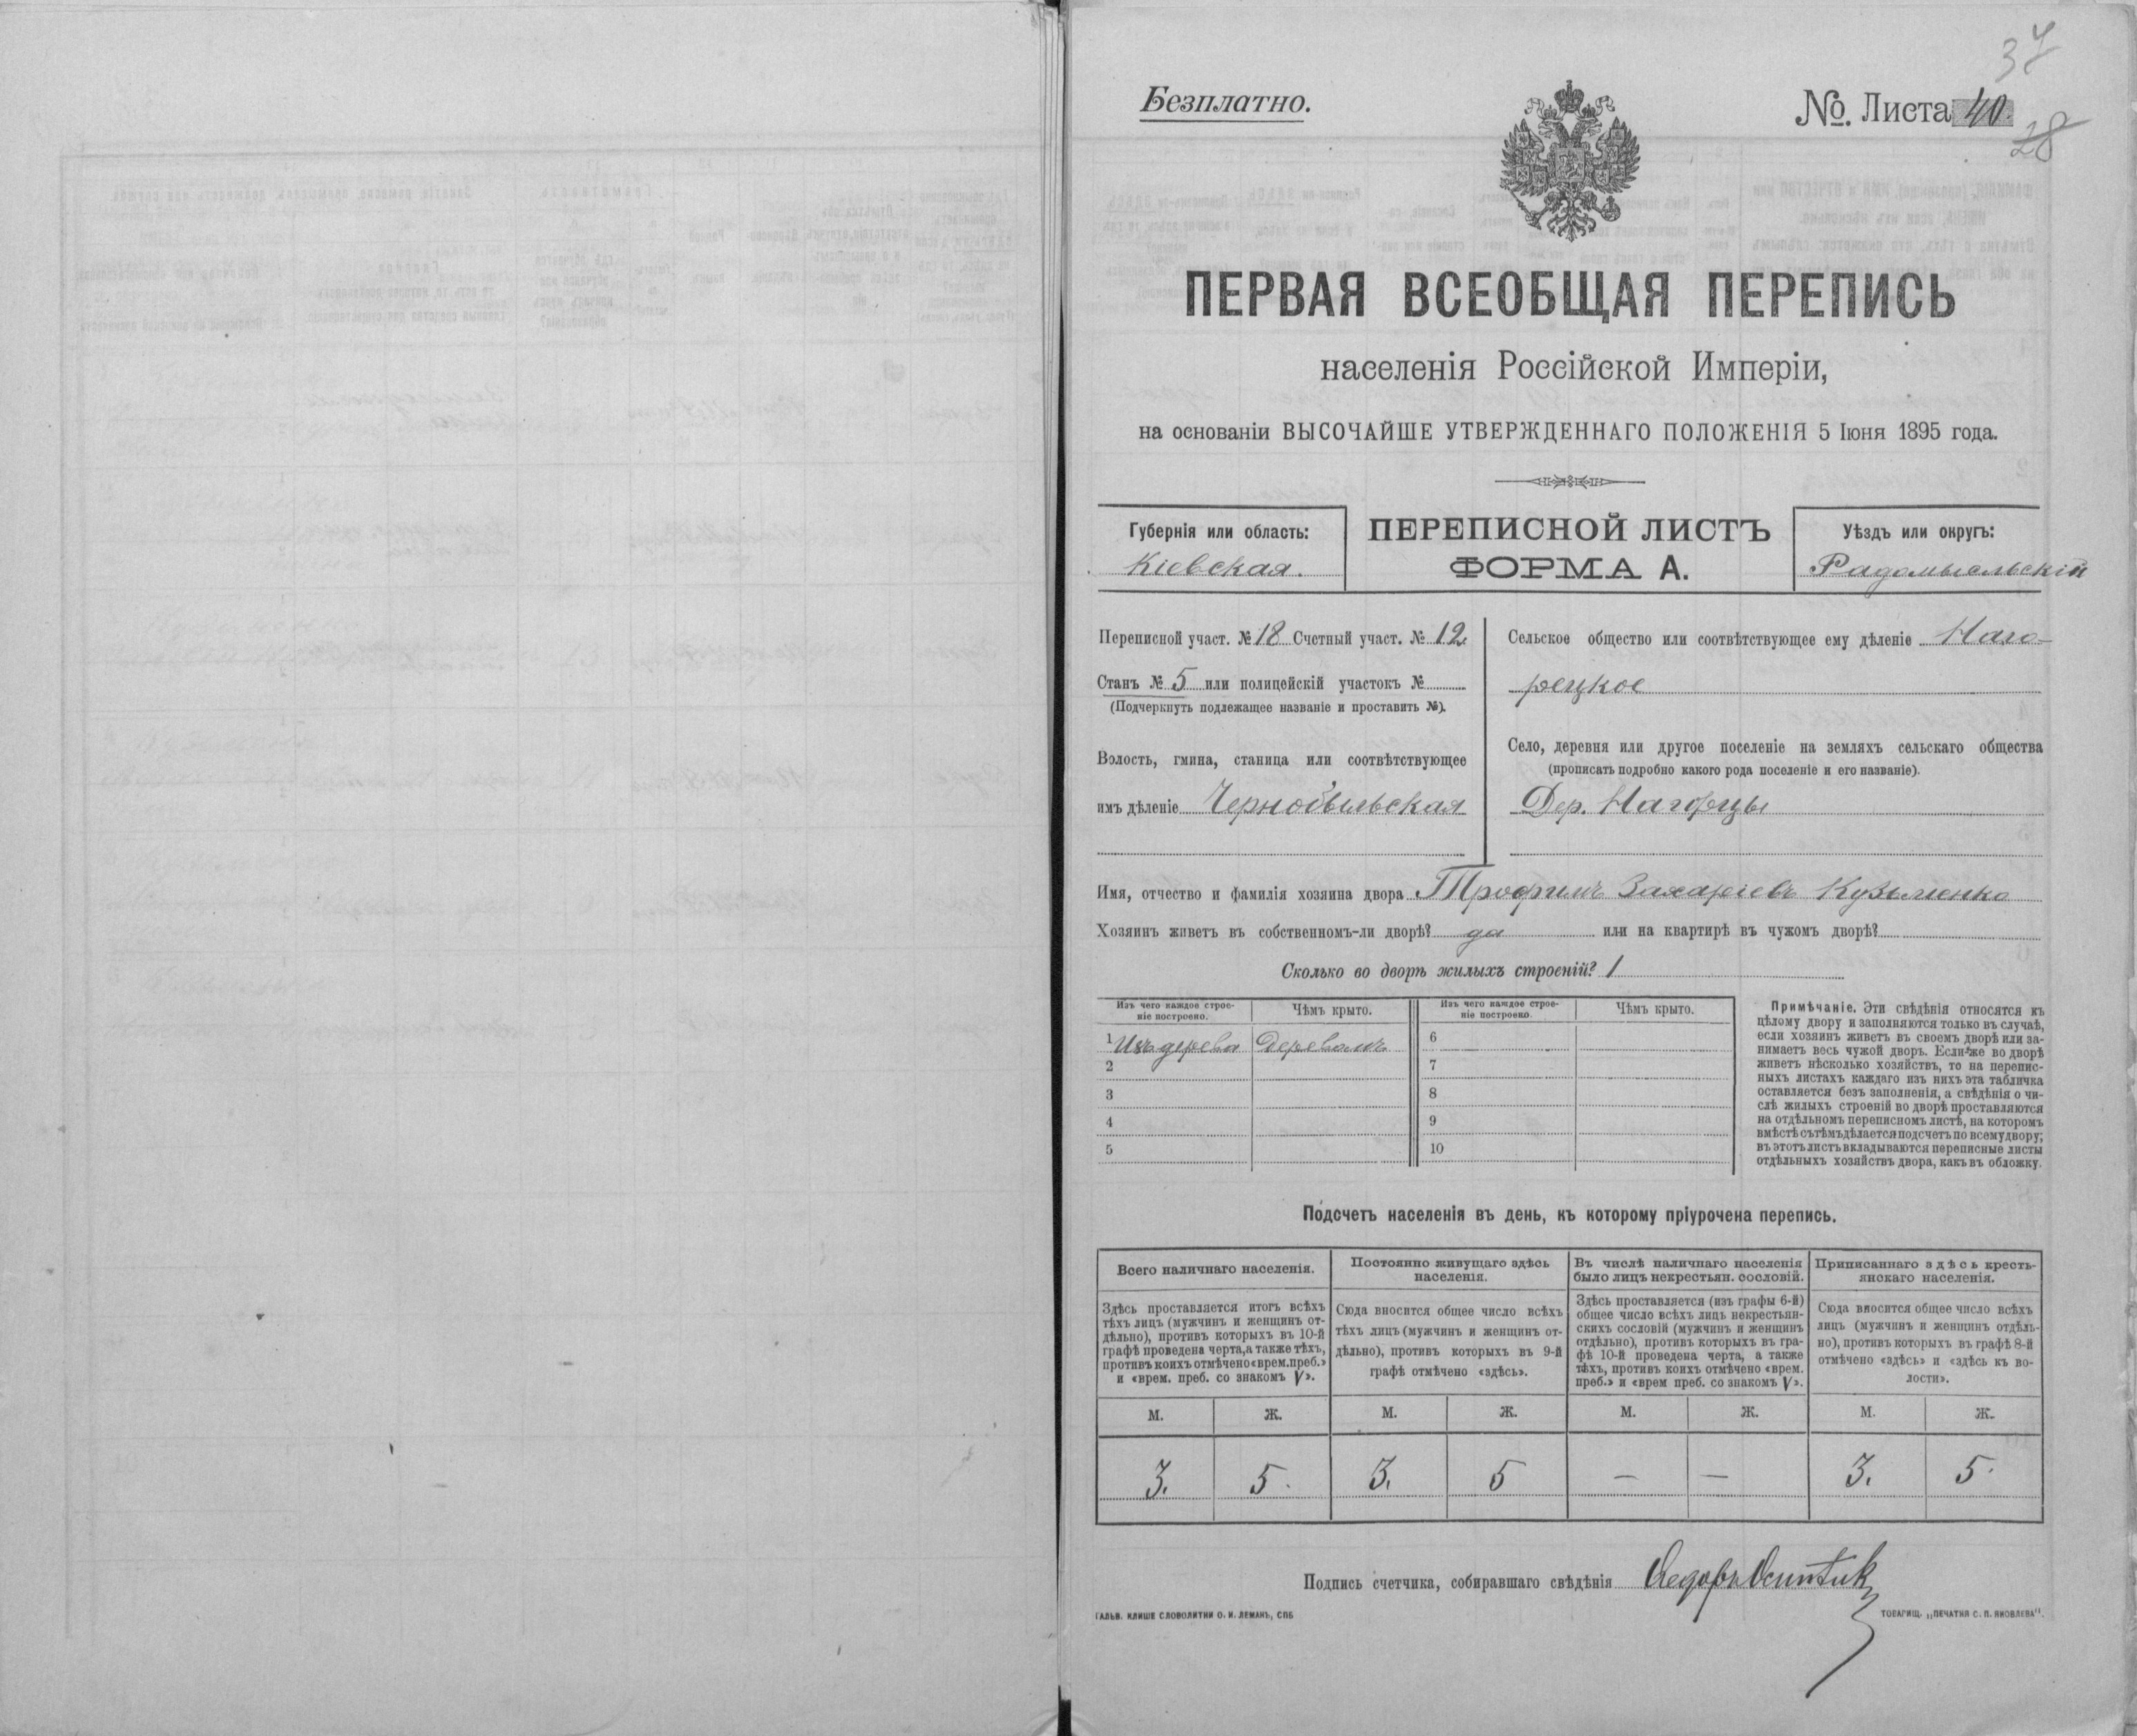 37
Безплатно.
№. Листа 40.
28
ПЕРВАЯ ВСЕОБЩАЯ ПЕРЕПИСЬ
населенія Россійской Имперіи,
на основаніи ВЫСОЧАЙШЕ УТВЕРЖДЕННАГО ПОЛОЖЕНІЯ 5 Іюня 1895 года.
Губернія или область:
Кіевская.
ПЕРЕПИСНОЙ ЛИСТЪ
ФОРМА А.
Уѣздъ или округъ:
Радомысльскій
Переписной участ. № 18 Счетный участ. № 12
Станъ № 5 или полицейскій участокъ №
(Подчеркнуть подлежащее названіе и проставить №).
Волость, гмина, станица или соотвѣтствующее
имъ дѣленіе Чернобыльская
Сельское общество или соотвѣтствующее ему дѣленіе Наго-
рецкое
Село, деревня или другое поселеніе на земляхъ сельскаго общества
(прописать подробно какого рода поселеніе и его названіе).
Дер. Нагорцы
Имя, отчество и фамилія хозяина двора Трофимъ Захаріевъ Кузьменко
Хозяинъ живетъ въ собственномъ-ли дворѣ? да или на квартирѣ въ чужомъ дворѣ?
Сколько во дворѣ жилыхъ строеній? 1
Изъ чего каждое строе-
ніе построено.
Чѣмъ крыто.
Изъ чего каждое строе-
ніе построено.
Чѣмъ крыто.
1 Изъ дерева Деревомъ 6
2 7
3 8
4 9
5 10
Примѣчаніе. Эти свѣдѣнія относятся къ
цѣлому двору и заполняются только въ случаѣ,
если хозяинъ живетъ въ своемъ дворѣ или за-
нимаетъ весь чужой дворъ. Если-же во дворѣ
живетъ нѣсколько хозяйствъ, то на перепис-
ныхъ листахъ каждаго изъ нихъ эта табличка
оставляется безъ заполненія, а свѣдѣнія о чи-
слѣ жилыхъ строеній во дворѣ проставляются
на отдѣльномъ переписномъ листѣ, на которомъ
вмѣстѣ съ тѣмъ дѣлается подсчетъ по всему двору;
въ этотъ листъ вкладываются переписные листы
отдѣльныхъ хозяйствъ двора, какъ въ обложку.
Подсчетъ населенія въ день, къ которому пріурочена перепись.
Всего наличнаго населенія.
Здѣсь проставляется итогъ всѣхъ
тѣхъ лицъ (мужчинъ и женщинъ от-
дѣльно), противъ которыхъ въ 10-й
графѣ проведена черта, а также тѣхъ,
противъ коихъ отмѣчено «врем. преб.»
и «врем. преб. со знакомъ V».
Постоянно живущаго здѣсь
населенія.
Сюда вносится общее число всѣхъ
тѣхъ лицъ (мужчинъ и женщинъ от-
дѣльно), противъ которыхъ въ 9-й
графѣ отмѣчено «здѣсь».
Въ числѣ наличнаго населенія
было лицъ некрестьян. сословій.
Здѣсь проставляется (изъ графы 6-й)
общее число всѣхъ лицъ некрестьян-
скихъ сословій (мужчинъ и женщинъ
отдѣльно), противъ которыхъ въ гра-
фѣ 10-й проведена черта, а также
тѣхъ, противъ коихъ отмѣчено «врем.
преб.» и «врем преб. со знакомъ V».
Приписаннаго здѣсь кресть-
янскаго населенія.
Сюда вносится общее число всѣхъ
лицъ (мужчинъ и женщинъ отдѣль-
но), противъ которыхъ въ графѣ 8-й
отмѣчено «здѣсь» и «здѣсь къ во-
лости».
М. Ж. М. Ж. М. Ж. М. Ж.
3. 5. 3. 5 — — 3. 5.
Подпись счетчика, собиравшаго свѣдѣнія
ГАЛЬВ. КЛИШЕ СЛОВОЛИТНИ О. И. ЛЕМАНЪ, СПБ
ТОВАРИЩ. „ПЕЧАТНЯ С. П. ЯКОВЛЕВА".